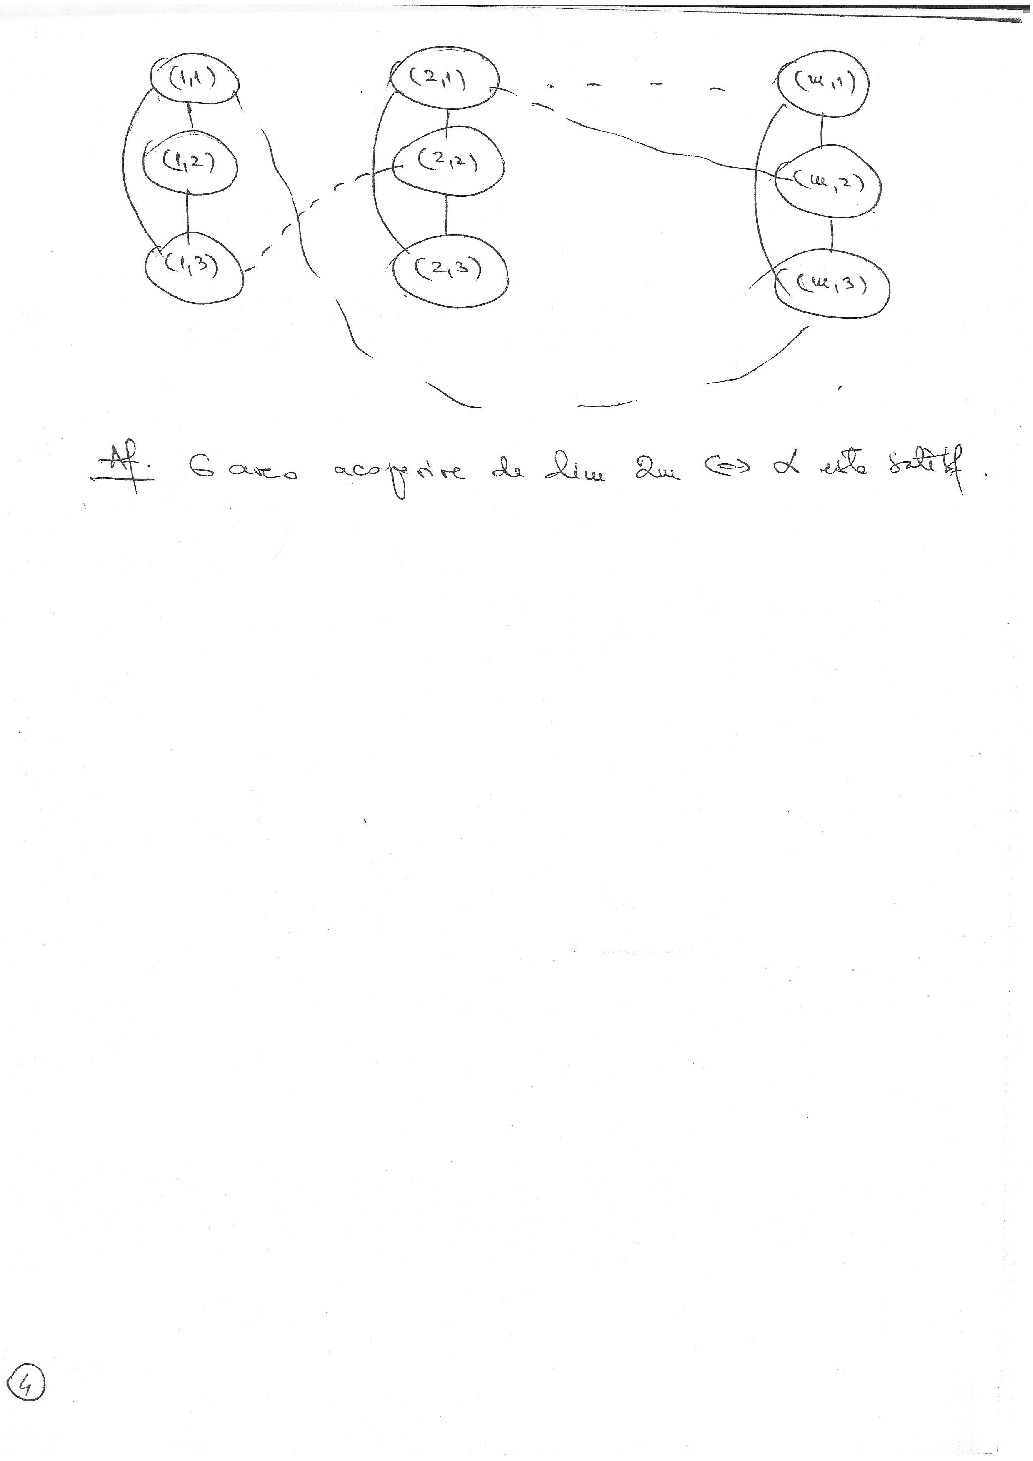 (1,1) (2,1) (m,1)
(1,2) (2,2) (m,2)
(1,3) (2,3) (m,3)
Af. G are o acoperire de dim 2m <=> α este satisf.
4